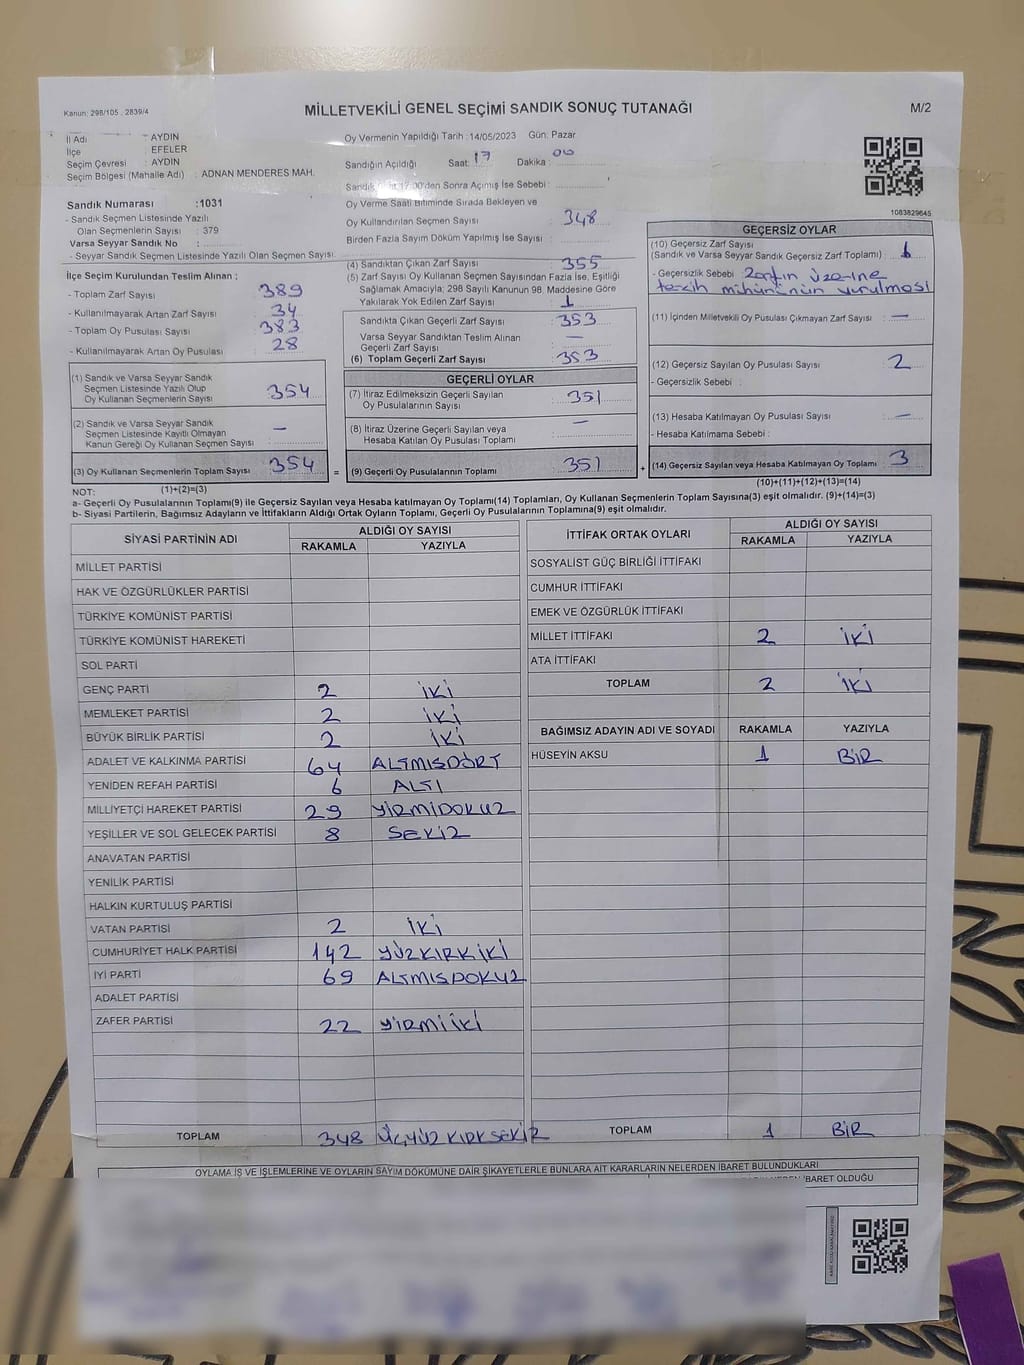 Kanun: 298/105 , 2839/4
MİLLETVEKİLİ GENEL SEÇİMİ SANDIK SONUÇ TUTANAĞI
M/2
İl Adı : AYDIN
İlçe : EFELER
Seçim Çevresi : AYDIN
Seçim Bölgesi (Mahalle Adı) : ADNAN MENDERES MAH.
Sandık Numarası :1031
- Sandık Seçmen Listesinde Yazılı
Olan Seçmenlerin Sayısı : 379
Varsa Seyyar Sandık No :
- Seyyar Sandık Seçmen Listesinde Yazılı Olan Seçmen Sayısı:
İlçe Seçim Kurulundan Teslim Alınan :
- Toplam Zarf Sayısı : 389
- Kullanılmayarak Artan Zarf Sayısı : 34
- Toplam Oy Pusulası Sayısı : 383
- Kullanılmayarak Artan Oy Pusulası : 28
(1) Sandık ve Varsa Seyyar Sandık
Seçmen Listesinde Yazılı Olup
Oy Kullanan Seçmenlerin Sayısı : 354
(2) Sandık ve Varsa Seyyar Sandık
Seçmen Listesinde Kayıtlı Olmayan
Kanun Gereği Oy Kullanan Seçmen Sayısı: —
(3) Oy Kullanan Seçmenlerin Toplam Sayısı : 354
(1)+(2)=(3)
Oy Vermenin Yapıldığı Tarih :14/05/2023 Gün: Pazar
Sandığın Açıldığı Saat: 17 Dakika : 00
17:00'den Sonra Açımış İse Sebebi :
Oy Verme Saati Bitiminde Sırada Bekleyen ve
Oy Kullandırılan Seçmen Sayısı : 348
Birden Fazla Sayım Döküm Yapılmış İse Sayısı :
(4) Sandıktan Çıkan Zarf Sayısı : 355
(5) Zarf Sayısı Oy Kullanan Seçmen Sayısından Fazla İse, Eşitliği
Sağlamak Amacıyla; 298 Sayılı Kanunun 98. Maddesine Göre
Yakılarak Yok Edilen Zarf Sayısı : 1
Sandıkta Çıkan Geçerli Zarf Sayısı : 353
Varsa Seyyar Sandıktan Teslim Alınan
Geçerli Zarf Sayısı : —
(6) Toplam Geçerli Zarf Sayısı : 353
GEÇERLİ OYLAR
(7) İtiraz Edilmeksizin Geçerli Sayılan
Oy Pusulalarının Sayısı : 351
(8) İtiraz Üzerine Geçerli Sayılan veya
Hesaba Katılan Oy Pusulası Toplamı : —
= (9) Geçerli Oy Pusulalarının Toplamı : 351
1083829645
GEÇERSİZ OYLAR
(10) Geçersiz Zarf Sayısı
(Sandık ve Varsa Seyyar Sandık Geçersiz Zarf Toplamı) : 1
- Geçersizlik Sebebi : Zarfın üzerine
tercih mührünün vurulması
(11) İçinden Milletvekili Oy Pusulası Çıkmayan Zarf Sayısı : —
(12) Geçersiz Sayılan Oy Pusulası Sayısı : 2
- Geçersizlik Sebebi :
(13) Hesaba Katılmayan Oy Pusulası Sayısı : —
- Hesaba Katılmama Sebebi :
+ (14) Geçersiz Sayılan veya Hesaba Katılmayan Oy Toplamı : 3
(10)+(11)+(12)+(13)=(14)
NOT:
a- Geçerli Oy Pusulalarının Toplamı(9) ile Geçersiz Sayılan veya Hesaba katılmayan Oy Toplamı(14) Toplamları, Oy Kullanan Seçmenlerin Toplam Sayısına(3) eşit olmalıdır. (9)+(14)=(3)
b- Siyasi Partilerin, Bağımsız Adayların ve İttifakların Aldığı Ortak Oyların Toplamı, Geçerli Oy Pusulalarının Toplamına(9) eşit olmalıdır.
SİYASİ PARTİNİN ADI ALDIĞI OY SAYISI
RAKAMLA YAZIYLA
MİLLET PARTİSİ
HAK VE ÖZGÜRLÜKLER PARTİSİ
TÜRKİYE KOMÜNİST PARTİSİ
TÜRKİYE KOMÜNİST HAREKETİ
SOL PARTİ
GENÇ PARTİ 2 İKİ
MEMLEKET PARTİSİ 2 İKİ
BÜYÜK BİRLİK PARTİSİ 2 İKİ
ADALET VE KALKINMA PARTİSİ 64 ALTMIŞDÖRT
YENİDEN REFAH PARTİSİ 6 ALTI
MİLLİYETÇİ HAREKET PARTİSİ 29 YİRMİDOKUZ
YEŞİLLER VE SOL GELECEK PARTİSİ 8 SEKİZ
ANAVATAN PARTİSİ
YENİLİK PARTİSİ
HALKIN KURTULUŞ PARTİSİ
VATAN PARTİSİ 2 İKİ
CUMHURİYET HALK PARTİSİ 142 YÜZKIRKİKİ
İYİ PARTİ 69 ALTMIŞDOKUZ
ADALET PARTİSİ
ZAFER PARTİSİ 22 YİRMİİKİ
TOPLAM 348 ÜÇYÜZKIRKSEKİZ
İTTİFAK ORTAK OYLARI ALDIĞI OY SAYISI
RAKAMLA YAZIYLA
SOSYALİST GÜÇ BİRLİĞİ İTTİFAKI
CUMHUR İTTİFAKI
EMEK VE ÖZGÜRLÜK İTTİFAKI
MİLLET İTTİFAKI 2 İKİ
ATA İTTİFAKI
TOPLAM 2 İKİ
BAĞIMSIZ ADAYIN ADI VE SOYADI RAKAMLA YAZIYLA
HÜSEYİN AKSU 1 BİR
TOPLAM 1 BİR
OYLAMA İŞ VE İŞLEMLERİNE VE OYLARIN SAYIM DÖKÜMÜNE DAİR ŞİKAYETLERLE BUNLARA AİT KARARLARIN NELERDEN İBARET BULUNDUKLARI
İBARET OLDUĞU